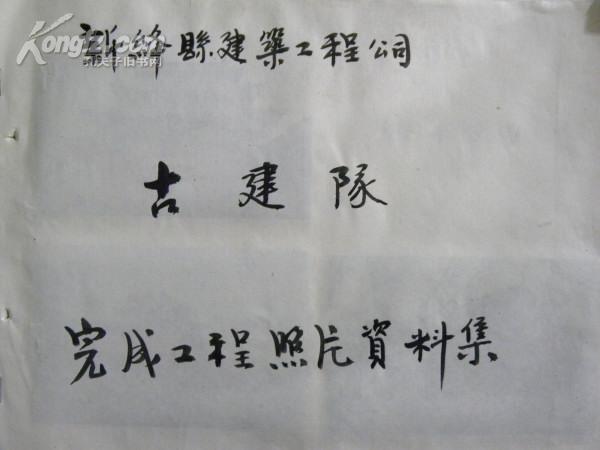 新絳縣建築工程公司
古建隊
完成工程照片資料集
Kongfz.com
孔夫子旧书网